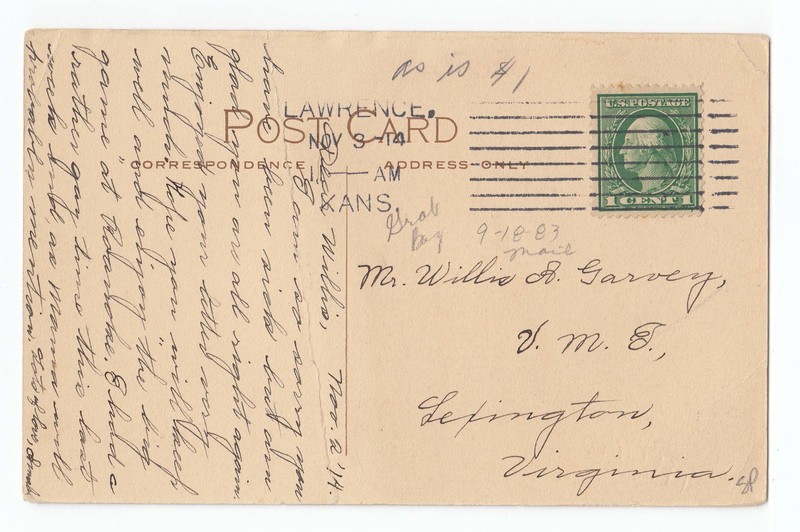 as is $1
LAWRENCE,
NOV 3 -14
11 — AM
KANS.
POST CARD
CORRESPONDENCE
ADDRESS ONLY
U.S. POSTAGE
1 CENT 1
Grab
Bag
9-18-83
Mail
Mr. Willis A. Garvey,
V. M. I.,
Lexington,
Virginia.
SP
Nov. 2 '14.
Dear Willis,
I am so sorry you
have been sick but am
glad you are all right again.
Enjoyed your letter very
much. Hope you will keep
well and enjoy the big
game at "Roanoke." I had a
rather gay time this last
week end as Mama will
probably mention. Lots of love,